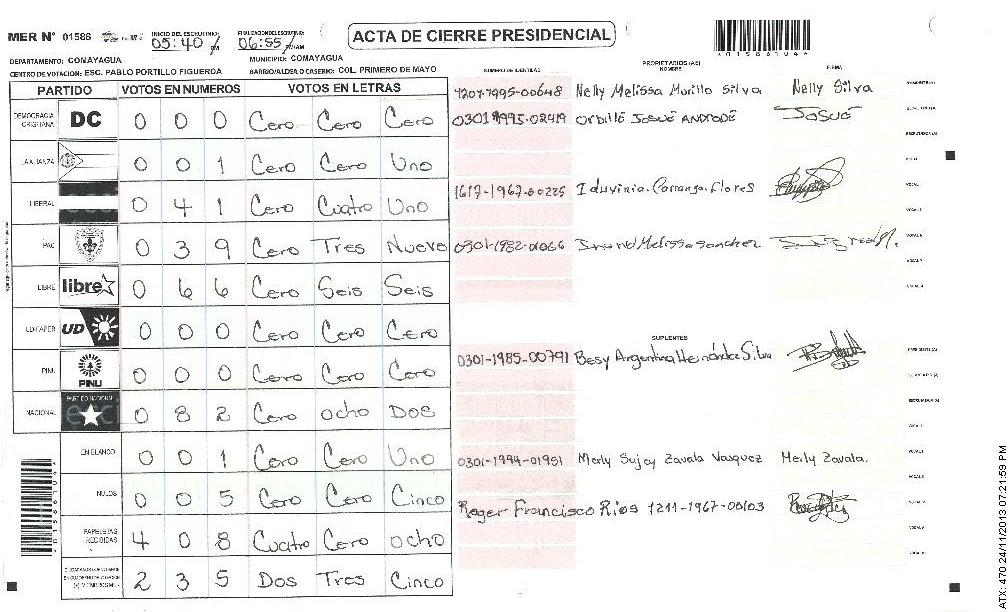 MER N° 01586
INICIO DEL ESCRUTINIO:
05:40 PM
FINALIZACION DEL ESCRUTINIO:
06:55 PM/AM
ACTA DE CIERRE PRESIDENCIAL
*015866104*
DEPARTAMENTO: COMAYAGUA
MUNICIPIO: COMAYAGUA
CENTRO DE VOTACION: ESC. PABLO PORTILLO FIGUEROA
BARRIO/ALDEA O CASERIO: COL. PRIMERO DE MAYO
PARTIDO VOTOS EN NUMEROS VOTOS EN LETRAS
DEMOCRACIA CRISTIANA DC 0 0 0 Cero Cero Cero
LA ALIANZA 0 0 1 Cero Cero Uno
LIBERAL 0 4 1 Cero Cuatro Uno
PAC 0 3 9 Cero Tres Nueve
LIBRE libre 0 6 6 Cero Seis Seis
UD-FAPER UD 0 0 0 Cero Cero Cero
PINU PINU 0 0 0 Cero Cero Cero
NACIONAL PARTIDO NACIONAL 0 8 2 Cero ocho Dos
EN BLANCO 0 0 1 Cero Cero Uno
NULOS 0 0 5 Cero Cero Cinco
PAPELETAS RECIBIDAS 4 0 8 Cuatro Cero ocho
2 3 5 Dos Tres Cinco
NUMERO DE IDENTIDAD
PROPIETARIOS (AS)
NOMBRE
FIRMA
1207-1995-00648 Nelly Melissa Murillo Silva Nelly Silva
0301 1995-02419 Orbille Josué Andrade Josué
1617-1967-00225 Iduvinia Carranza flores
0301-1982-01066 Melissa Sanchez
SUPLENTES
0301-1985-00791 Besy Argentina Hernández Silva
0301-1994-01951 Merly Sujey Zavala Vasquez Merly Zavala.
Roger Francisco Rios 1211-1967-00103
ATX: 470 24/11/2013 07:21:59 PM